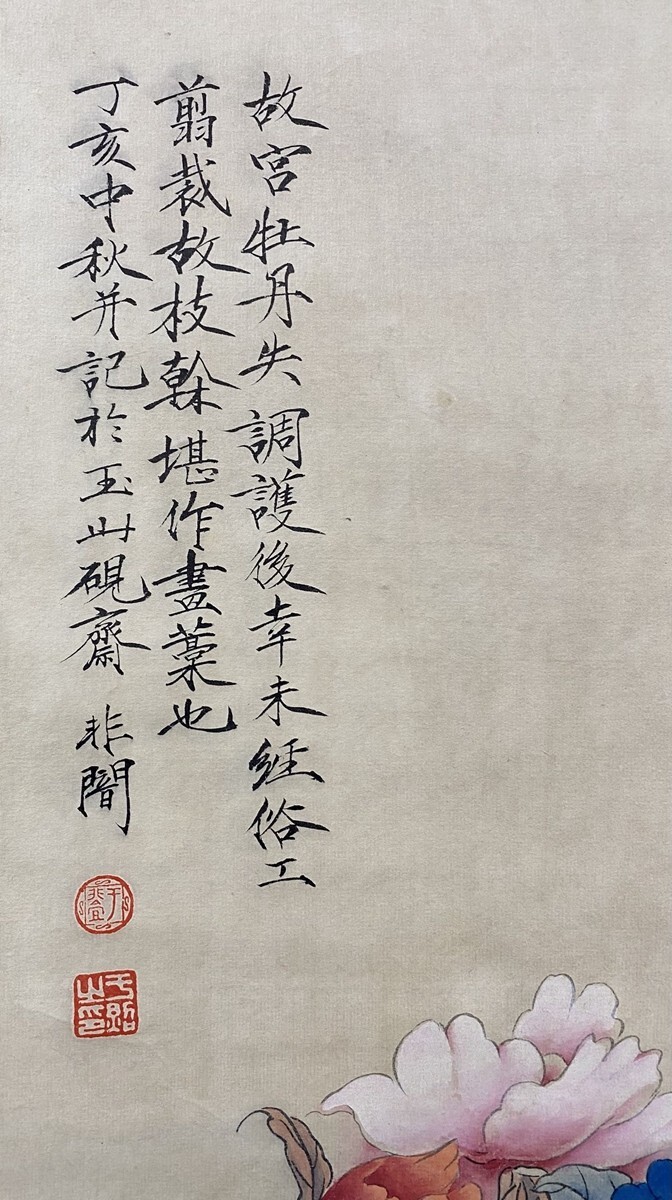 故宮牡丹失調護後幸未經俗工
翦裁故枝榦堪作畫藁也
丁亥中秋并記於玉山硯齋 非闇
于非闇
于照之印